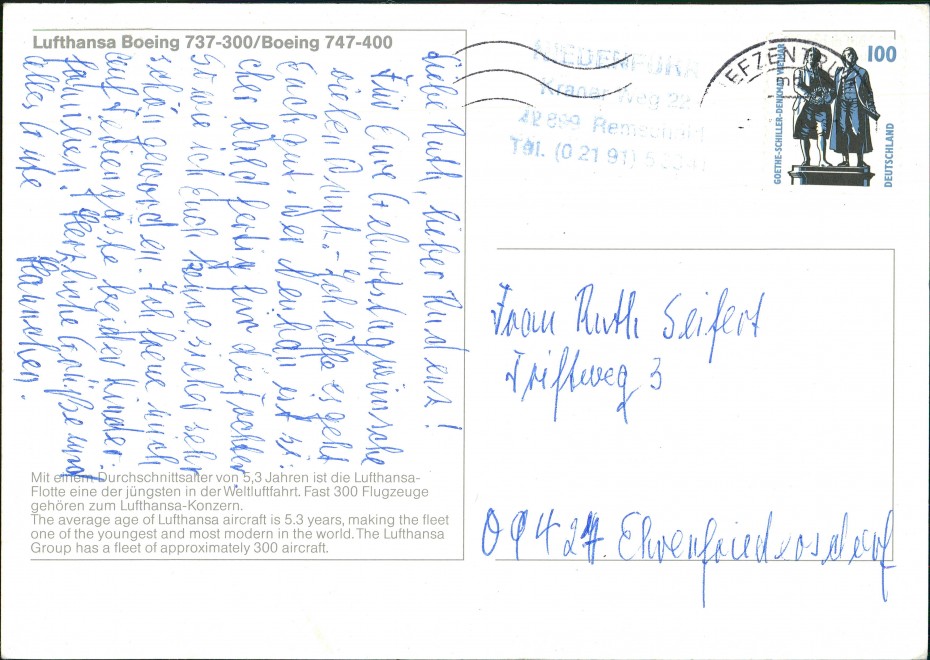 Lufthansa Boeing 737-300/Boeing 747-400
Liebe Ruth, lieber
Für Eure Geburtstagswünsche
vielen Dank. - Ich hoffe es geht
Euch gut. Der ist si-
cher bald fertig für die Tochter.
So wie ich Euch kenne sicher sehr
schön geworden. Ich freue mich
auf Feriengäste beider Kinder-
familien. Herzliche Grüße und
alles Gute
Hannchen.
Mit einem Durchschnittsalter von 5,3 Jahren ist die Lufthansa-
Flotte eine der jüngsten in der Weltluftfahrt. Fast 300 Flugzeuge
gehören zum Lufthansa-Konzern.
The average age of Lufthansa aircraft is 5.3 years, making the fleet
one of the youngest and most modern in the world. The Lufthansa
Group has a fleet of approximately 300 aircraft.
Weg
42899 Remscheid
Tel. (0 21 91)
BRIEFZENTRUM
GOETHE-SCHILLER-DENKMAL WEIMAR
100
DEUTSCHLAND
Frau Ruth Seifert
Triftweg 3
09427 Ehrenfriedersdorf